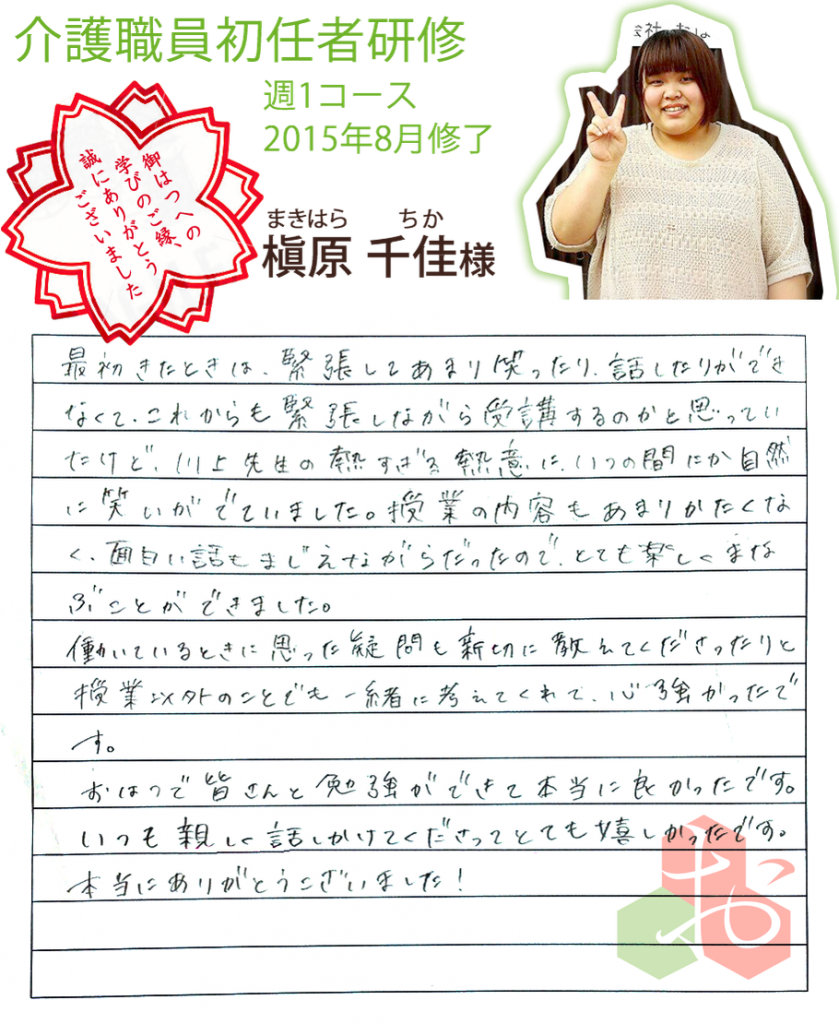 介護職員初任者研修
週1コース
2015年8月修了
御はつへの
学びのご縁、
誠にありがとう
ございました
まきはら ちか
槇原 千佳様
最初きたときは、緊張してあまり笑ったり、話したりができ
なくて、これからも緊張しながら受講するのかと思ってい
たけど、川上先生の熱すぎる熱意に、いつの間にか自然
に笑いがでていました。授業の内容もあまりかたくな
く、面白い話もまじえながらだったので、とても楽しくまな
ぶことができました。
働いているときに思った疑問も親切に教えてくださったりと
授業以外のことでも一緒に考えてくれて、心強かったで
す。
おはつで皆さんと勉強ができて本当に良かったです。
いつも親しく話しかけてくださってとても嬉しかったです。
本当にありがとうございました!
お